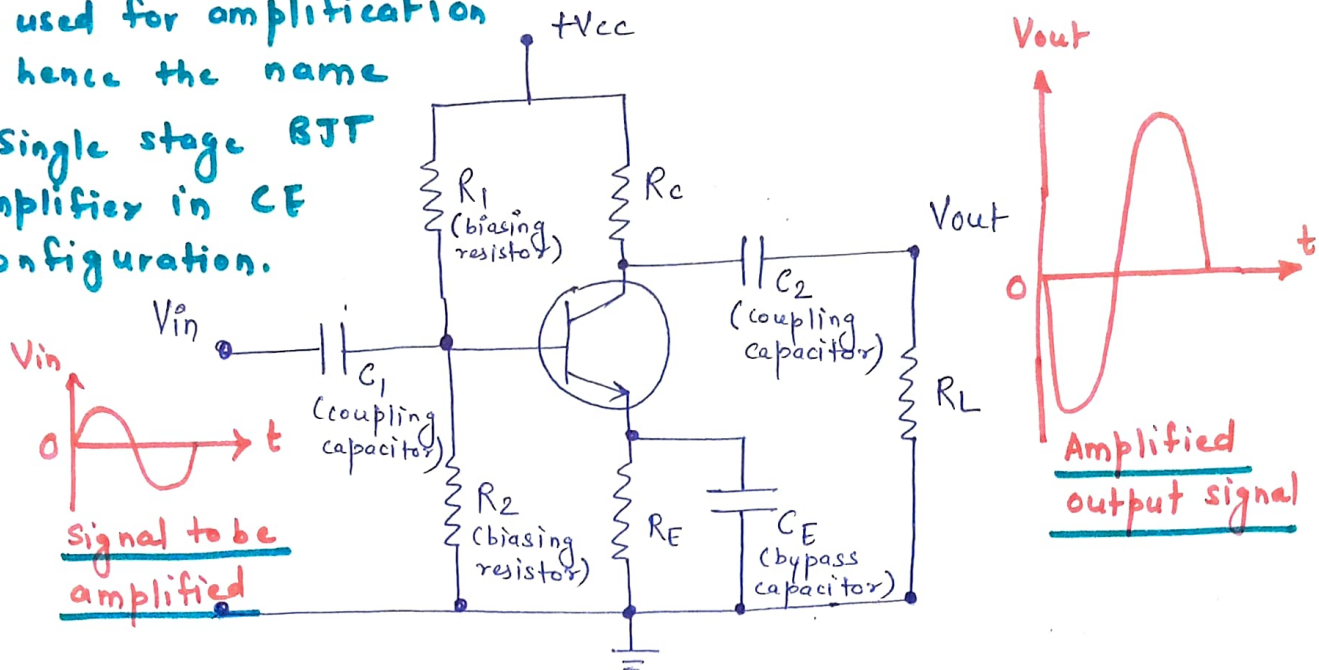 used for amplification
hence the name
Single stage BJT
mplifier in CE
onfiguration.
+Vcc
R1
(biasing
resistor)
Rc
Vin
C1
(coupling
capacitor)
C2
(coupling
capacitor)
Vout
RL
R2
(biasing
resistor)
RE
CE
(bypass
capacitor)
Vin
0
t
Signal to be
amplified
Vout
0
t
Amplified
output signal